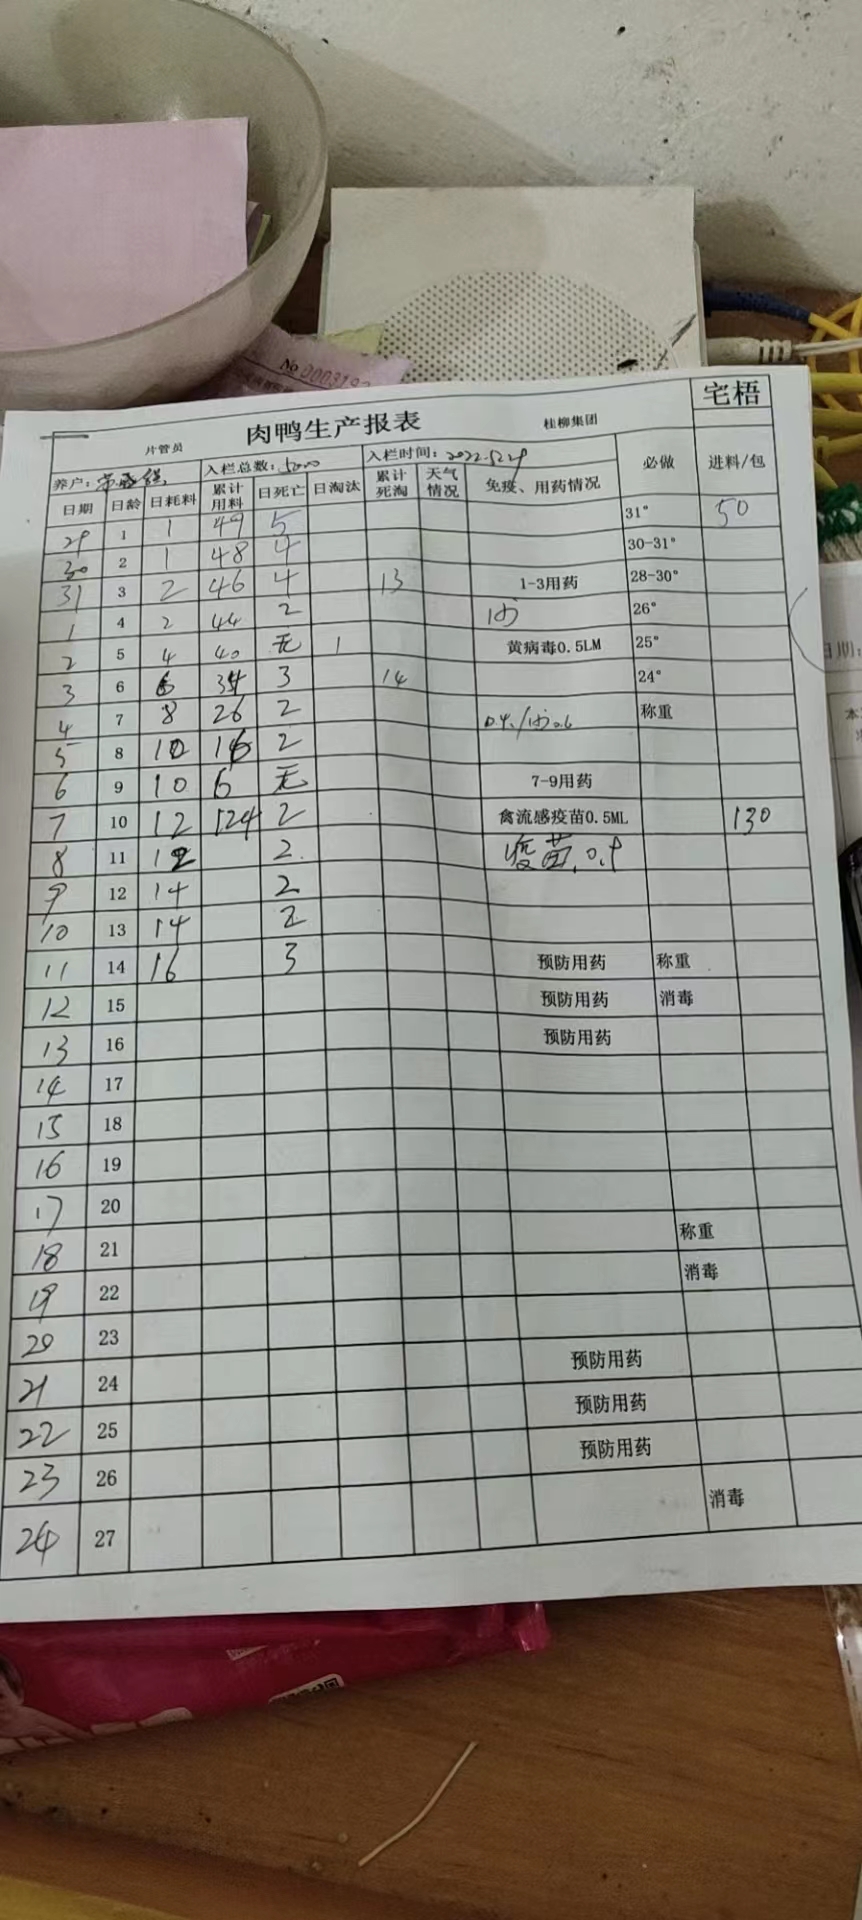 No 0003192
宅梧
肉鸭生产报表 桂柳集团
片管员
养户: 入栏总数: 5000 入栏时间: 2022.5.29 必做 进料/包
日期 日龄 日耗料 累计用料 日死亡 日淘汰 累计死淘 天气情况 免疫、用药情况
29 1 1 49 5 31° 50
30 2 1 48 4 30-31°
31 3 2 46 4 13 1-3用药 28-30°
1 4 2 44 2 26°
2 5 4 40 无 1 黄病毒0.5LM 25°
3 6 6 34 3 14 24°
4 7 8 26 2 称重
5 8 10 16 2
6 9 10 6 无 7-9用药
7 10 12 124 2 禽流感疫苗0.5ML 130
8 11 12 2 疫苗
9 12 14 2
10 13 14 2
11 14 16 3 预防用药 称重
12 15 预防用药 消毒
13 16 预防用药
14 17
15 18
16 19
17 20
18 21 称重
19 22 消毒
20 23
21 24 预防用药
22 25 预防用药
23 26 预防用药
24 27 消毒
日期:
本